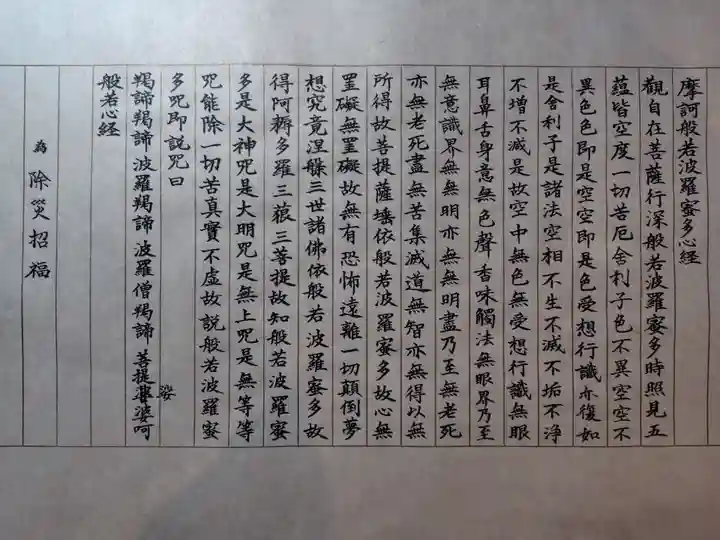 摩訶般若波羅蜜多心経
觀自在菩薩行深般若波羅蜜多時照見五
蘊皆空度一切苦厄舍利子色不異空空不
異色色即是空空即是色受想行識亦復如
是舍利子是諸法空相不生不滅不垢不浄
不增不滅是故空中無色無受想行識無眼
耳鼻舌身意無色聲香味觸法無眼界乃至
無意識界無無明亦無無明盡乃至無老死
亦無老死盡無苦集滅道無智亦無得以無
所得故菩提薩埵依般若波羅蜜多故心無
罣礙無罣礙故無有恐怖遠離一切顛倒夢
想究竟涅槃三世諸佛依般若波羅蜜多故
得阿耨多羅三藐三菩提故知般若波羅蜜
多是大神咒是大明咒是無上咒是無等等
咒能除一切苦真實不虛故説般若波羅蜜
多咒即説咒曰
羯諦羯諦波羅羯諦波羅僧羯諦菩提婆呵
娑
般若心経
為除災招福